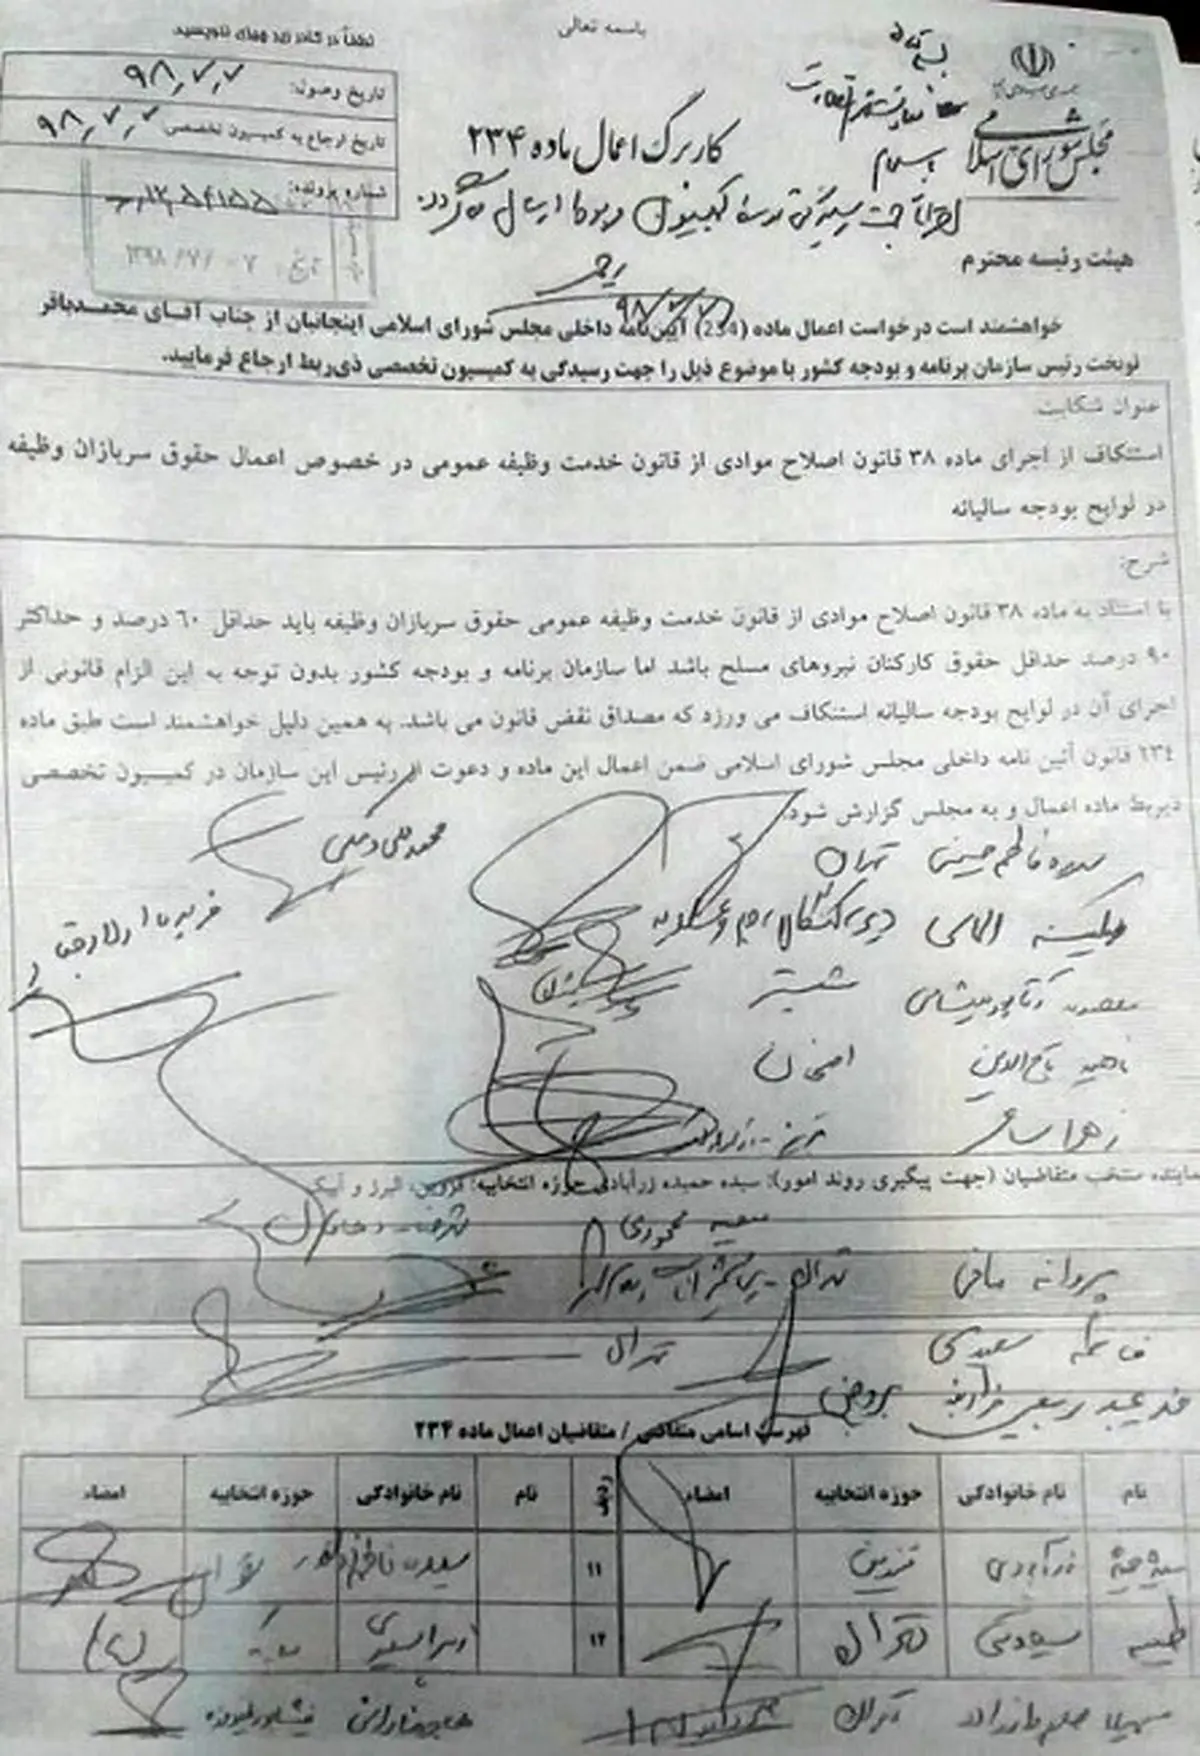 باسمه تعالی
لطفاً در کادر زیر چیزی ننویسید
تاریخ وصول: ۹۸,۷,۷
تاریخ ارجاع به کمیسیون تخصصی ۹۸,۷,۷
شماره پرونده:
۱۳۹۸/۷/۰۷ تاریخ
مجلس شورای اسلامی
کاربرگ اعمال ماده ۲۳۴
هیئت رئیسه محترم
۹۸/۷/۷
خواهشمند است درخواست اعمال ماده (234) آیین‌نامه داخلی مجلس شورای اسلامی اینجانبان از جناب آقای محمدباقر
نوبخت رئیس سازمان برنامه و بودجه کشور با موضوع ذیل را جهت رسیدگی به کمیسیون تخصصی ذی‌ربط ارجاع فرمایید.
عنوان شکایت:
استنکاف از اجرای ماده ۳۸ قانون اصلاح موادی از قانون خدمت وظیفه عمومی در خصوص اعمال حقوق سربازان وظیفه
در لوایح بودجه سالیانه
شرح:
با استناد به ماده ۳۸ قانون اصلاح موادی از قانون خدمت وظیفه عمومی حقوق سربازان وظیفه باید حداقل ۶۰ درصد و حداکثر
۹۰ درصد حداقل حقوق کارکنان نیروهای مسلح باشد اما سازمان برنامه و بودجه کشور بدون توجه به این الزام قانونی از
اجرای آن در لوایح بودجه سالیانه استنکاف می ورزد که مصداق نقض قانون می باشد. به همین دلیل خواهشمند است طبق ماده
۲۳٤ قانون آئین نامه داخلی مجلس شورای اسلامی ضمن اعمال این ماده و دعوت از رئیس این سازمان در کمیسیون تخصصی
ذیربط ماده اعمال و به مجلس گزارش شود.
محمدعلی وکیلی
سیده فاطمه حسینی تهران
فریده اولادقباد
سکینه الماسی دیر، کنگان، جم و عسلویه
معصومه آقاپور علیشاهی شبستر
ناهید تاج الدین اصفهان
زهرا ساعی تبریز
نماینده منتخب متقاضیان (جهت پیگیری روند امور): سیده حمیده زرآبادی حوزه انتخابیه: قزوین، البرز و آبیک
سمیه محمودی شهرضا - دهاقان
پروانه مافی تهران
فاطمه سعیدی تهران
خدیجه ربیعی بروجن
فهرست اسامی متقاضی / متقاضیان اعمال ماده ۲۳۴
نام نام خانوادگی حوزه انتخابیه امضاء ردیف نام نام خانوادگی حوزه انتخابیه امضاء
سیده حمیده زرآبادی قزوین ۱۱ سیده فاطمه
طیبه سیاوشی تهران ۱۲
تهران هاجر چنارانی نیشابور